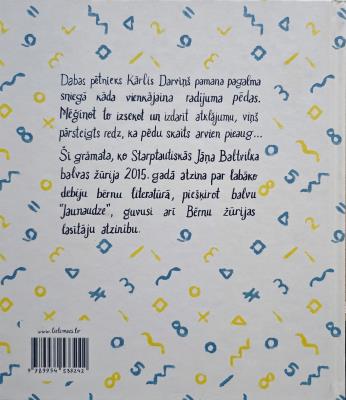 Dabas pētnieks Kārlis Darviņš pamana pagalma
sniegā kāda vienkājaina radījuma pēdas.
Mēģinot to izsekot un izdarīt atklājumu, viņš
pārsteigts redz, ka pēdu skaits arvien pieaug...
Šī grāmata, ko Starptautiskās Jāņa Baltvilka
balvas žūrija 2015. gadā atzina par labāko
debiju bērnu literatūrā, piešķirot balvu
"Jaunaudze", guvusi arī Bērnu žūrijas
lasītāju atzinību.
www.lielsmazs.lv
9789934 533242